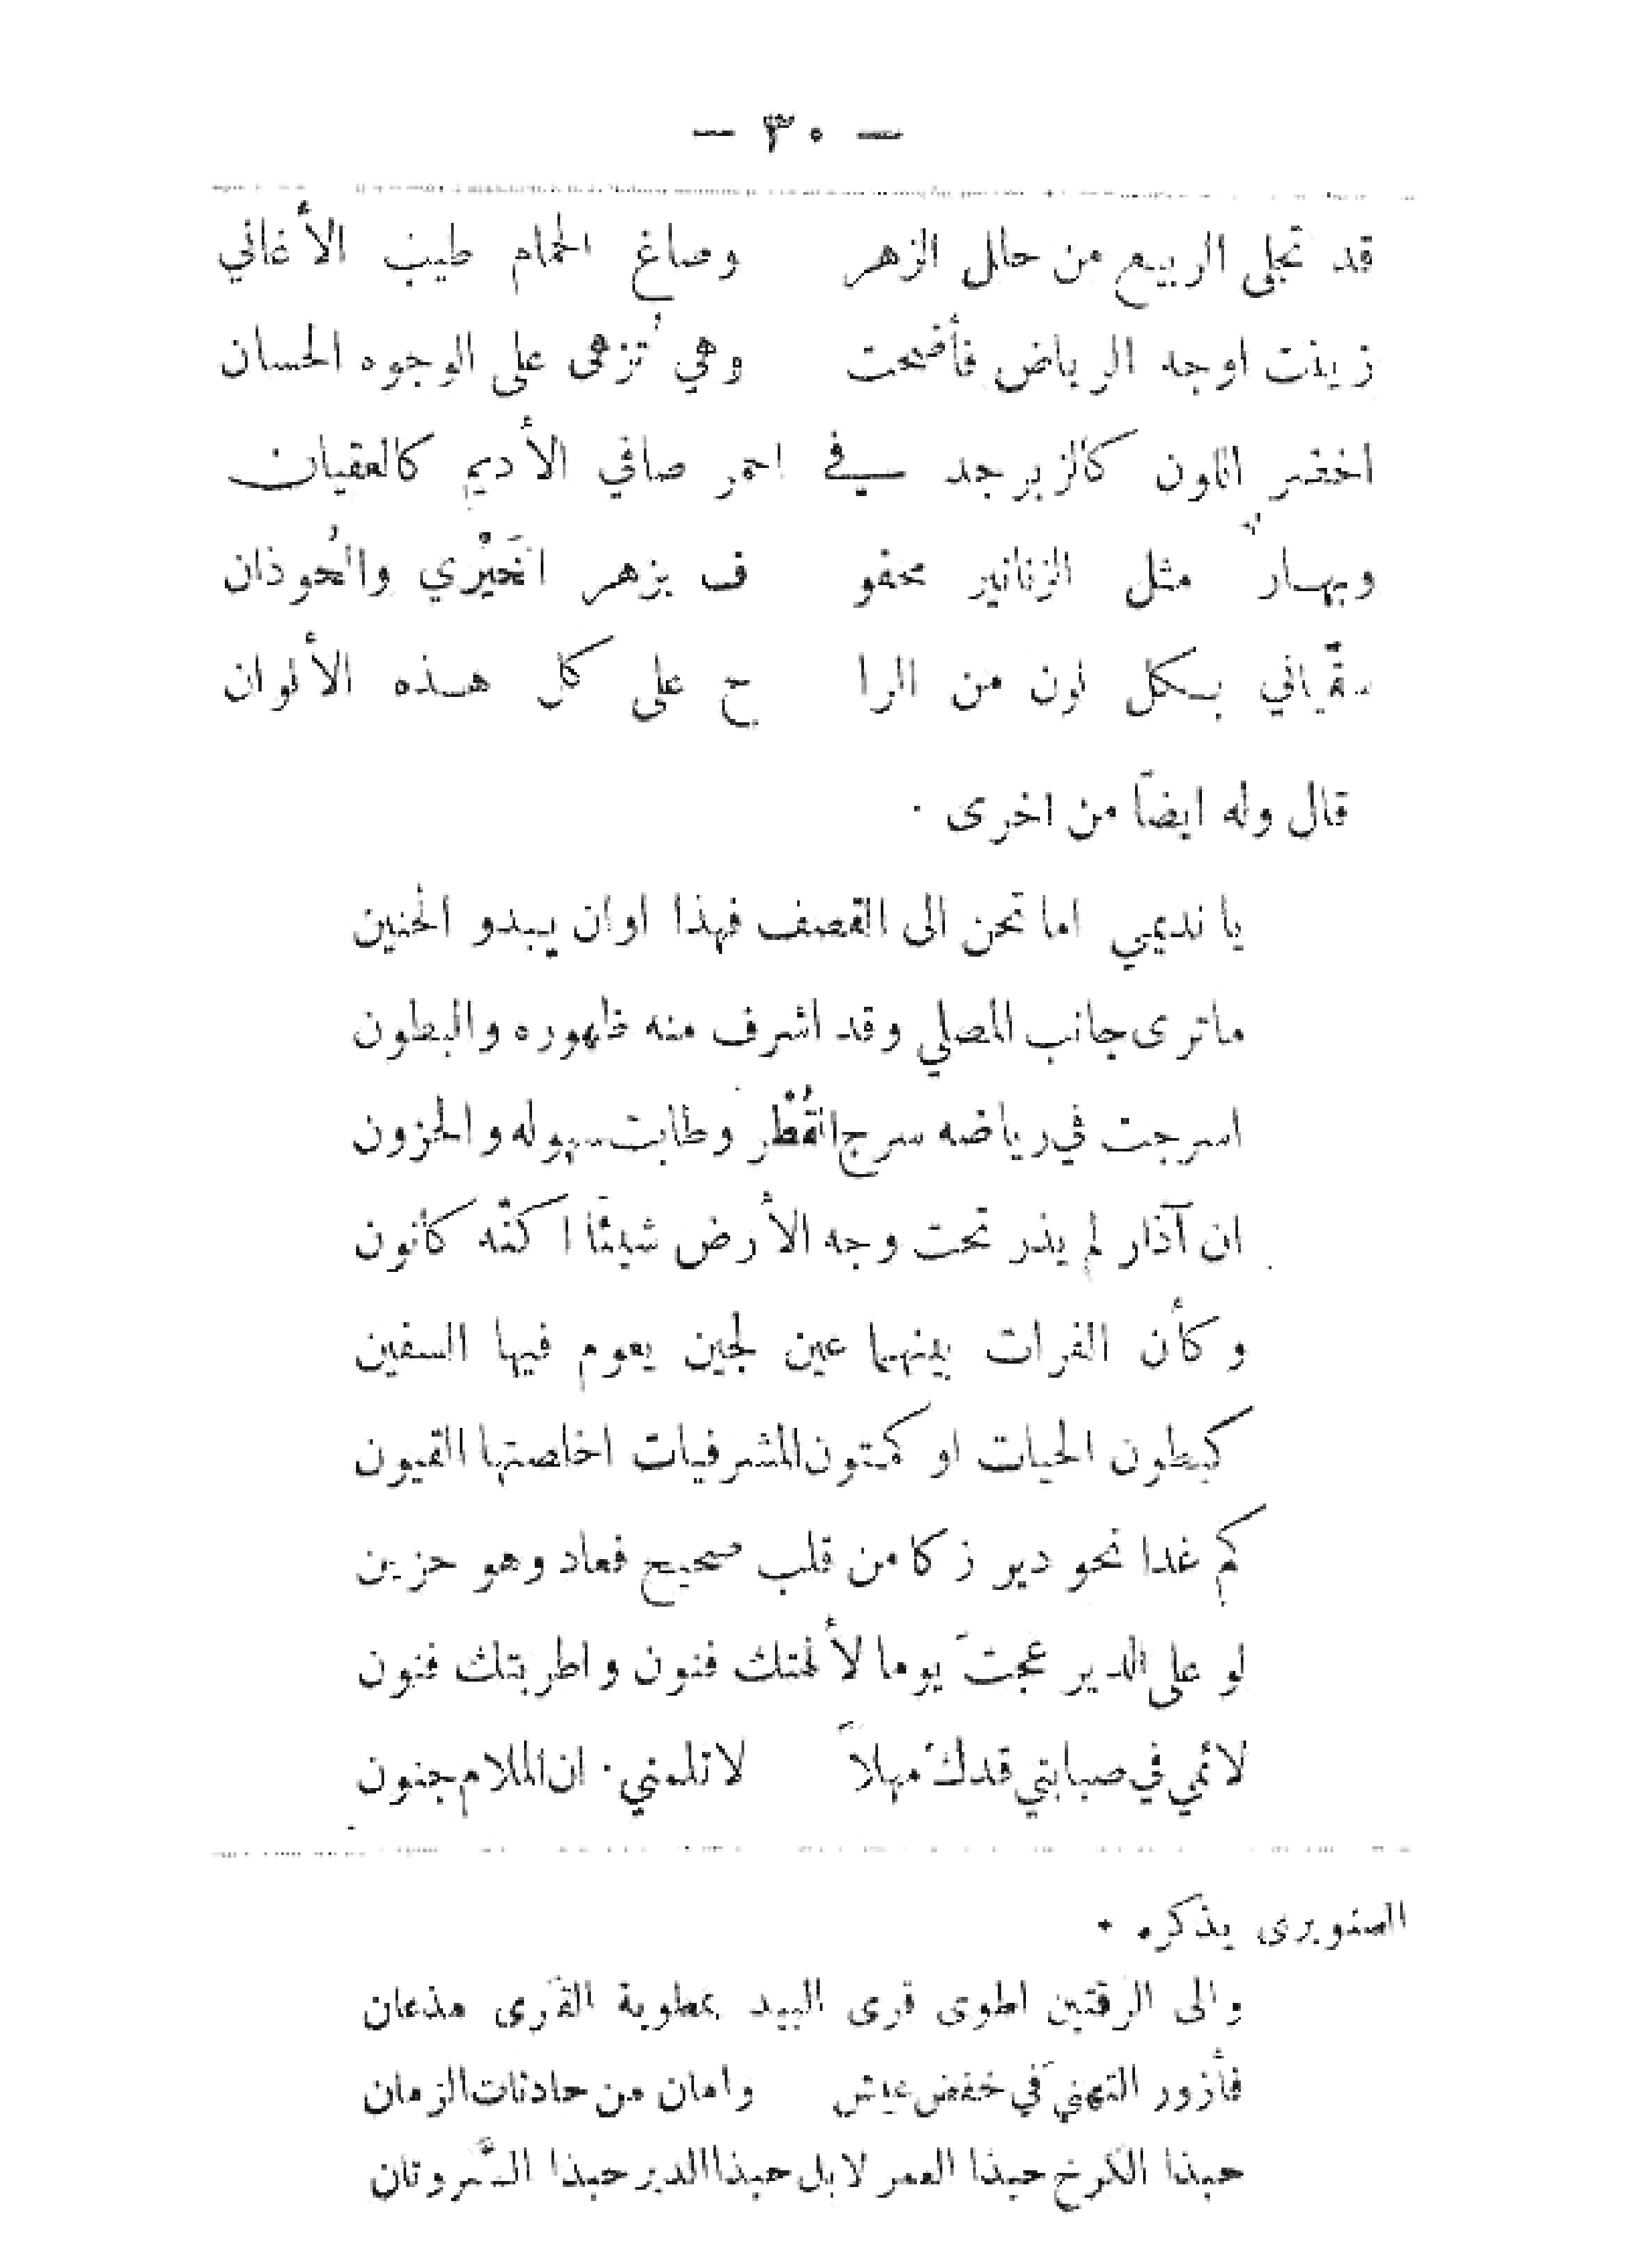 — ٣٠ —
قد تجلى الربيع من حلل الزهر وصاغ الحمام طيب الأغاني
زينت اوجه الرياض فأضحت وهي تُزهى على الوجوه الحسان
اخضر اللون كالزبرجد في احمر صافي الأديم كالعقيان
وبهار مثل الزنانير محفو ف بزهر الخَيْري والحُوذان
سقّياني بكل لون من الرا ح على كل هذه الألوان
قال وله ايضاً من اخرى ·
يا نديمي اما تحن الى القصف فهذا اوان يبدو الحنين
ماترى جانب المصلي وقد اشرف منه ظهوره والبطون
اسرجت في رياضه سرج القُطْر وطابت سهوله والحزون
ان آذار لم يذر تحت وجه الأرض شيئاً اكنّه كانون
وكأن الفرات بينهما عين لجين يعوم فيها السفين
كبطون الحيات او كمتون المشرفيات اخلصتها القيون
كم غدا نحو دير زكا من قلب صحيح فعاد وهو حزين
لو على الدير عجتَ يوما لألهتك فنون واطربتك فنون
لائمي في صبابتي قدكَ مهلاً لاتلمني · ان الملام جنون
الصنوبرى يذكره ·
والى الرقتين اطوى قرى البيد بمطوية القَرى مذعان
فأزور الهنيَ في خفض عيش وامان من حادثات الزمان
حبذا الكرخ حبذا العمر لا بل حبذا الدير حبذا السَّروتان